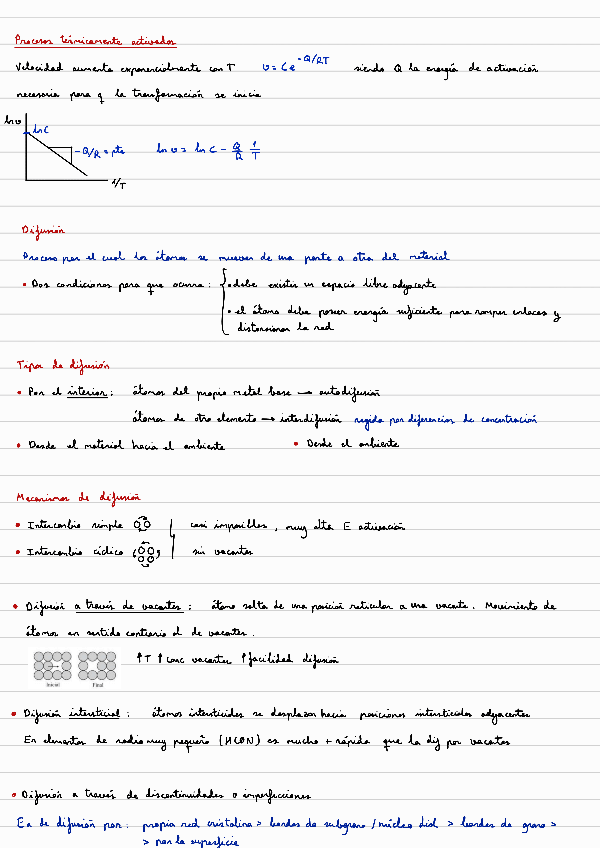 Procesos térmicamente activados
Velocidad aumenta exponencialmente con T v = C e^-Q/RT siendo Q la energía de activación
necesaria para q la transformación se inicie
ln v
ln C
-Q/R = pte
ln v = ln C - Q/R 1/T
1/T
Difusión
Proceso por el cual los átomos se mueven de una parte a otra del material
• Dos condiciones para que ocurra: { • debe existir un espacio libre adyacente
• el átomo debe poseer energía suficiente para romper enlaces y
distorsionar la red
Tipos de difusión
• Por el interior: átomos del propio metal base → autodifusión
átomos de otro elemento → interdifusión regida por diferencias de concentración
• Desde el material hacia el ambiente • Desde el ambiente
Mecanismos de difusión
• Intercambio simple casi imposibles, muy alta E activación
• Intercambio cíclico sin vacantes
• Difusión a través de vacantes: átomo salta de una posición reticular a una vacante. Movimiento de
átomos en sentido contrario al de vacantes.
↑T ↑conc vacantes ↑facilidad difusión
Inicial Final
• Difusión intersticial: átomos intersticiales se desplazan hacia posiciones intersticiales adyacentes
En elementos de radio muy pequeño (HCON) es mucho + rápida que la dif por vacantes
• Difusión a través de discontinuidades o imperfecciones
Ea de difusión por: propia red cristalina > bordes de subgrano / núcleo disl > bordes de grano >
> por la superficie